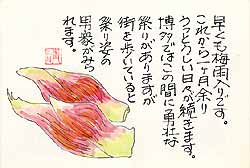 早くも梅雨入りです。
これから一ヶ月余り
うっとうしい日々が続きます。
博多ではこの間に勇壮な
祭りがありますが
街を歩いていると
祭り姿の
男衆がみら
れます。